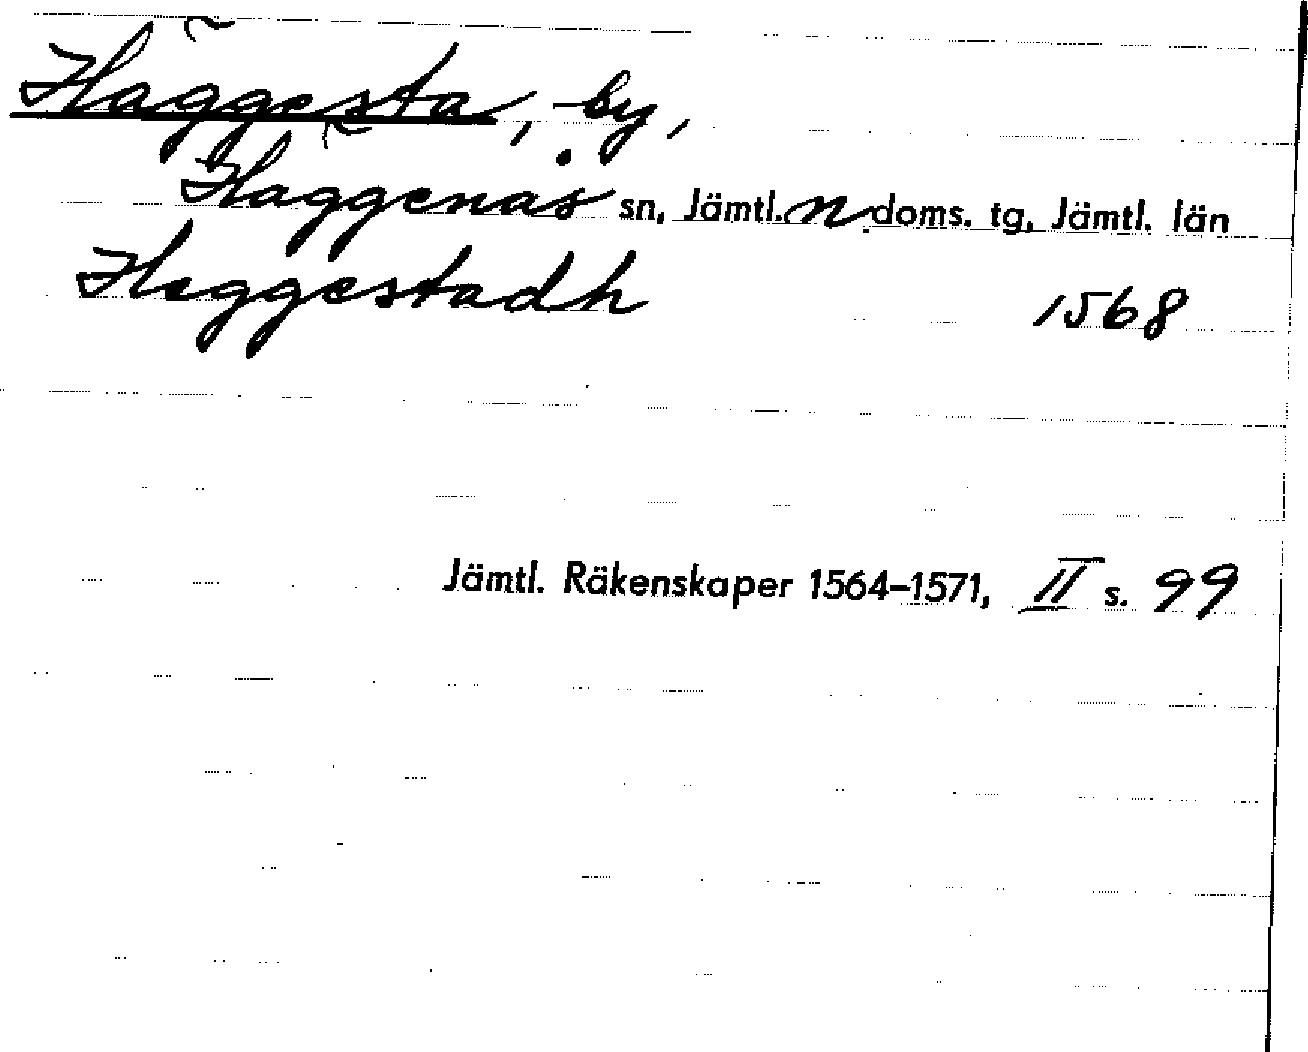 Häggesta, by,
Häggenås sn, Jämtl. n doms. tg, Jämtl. län
Heggestadh 1568
Jämtl. Räkenskaper 1564–1571, II s. 99